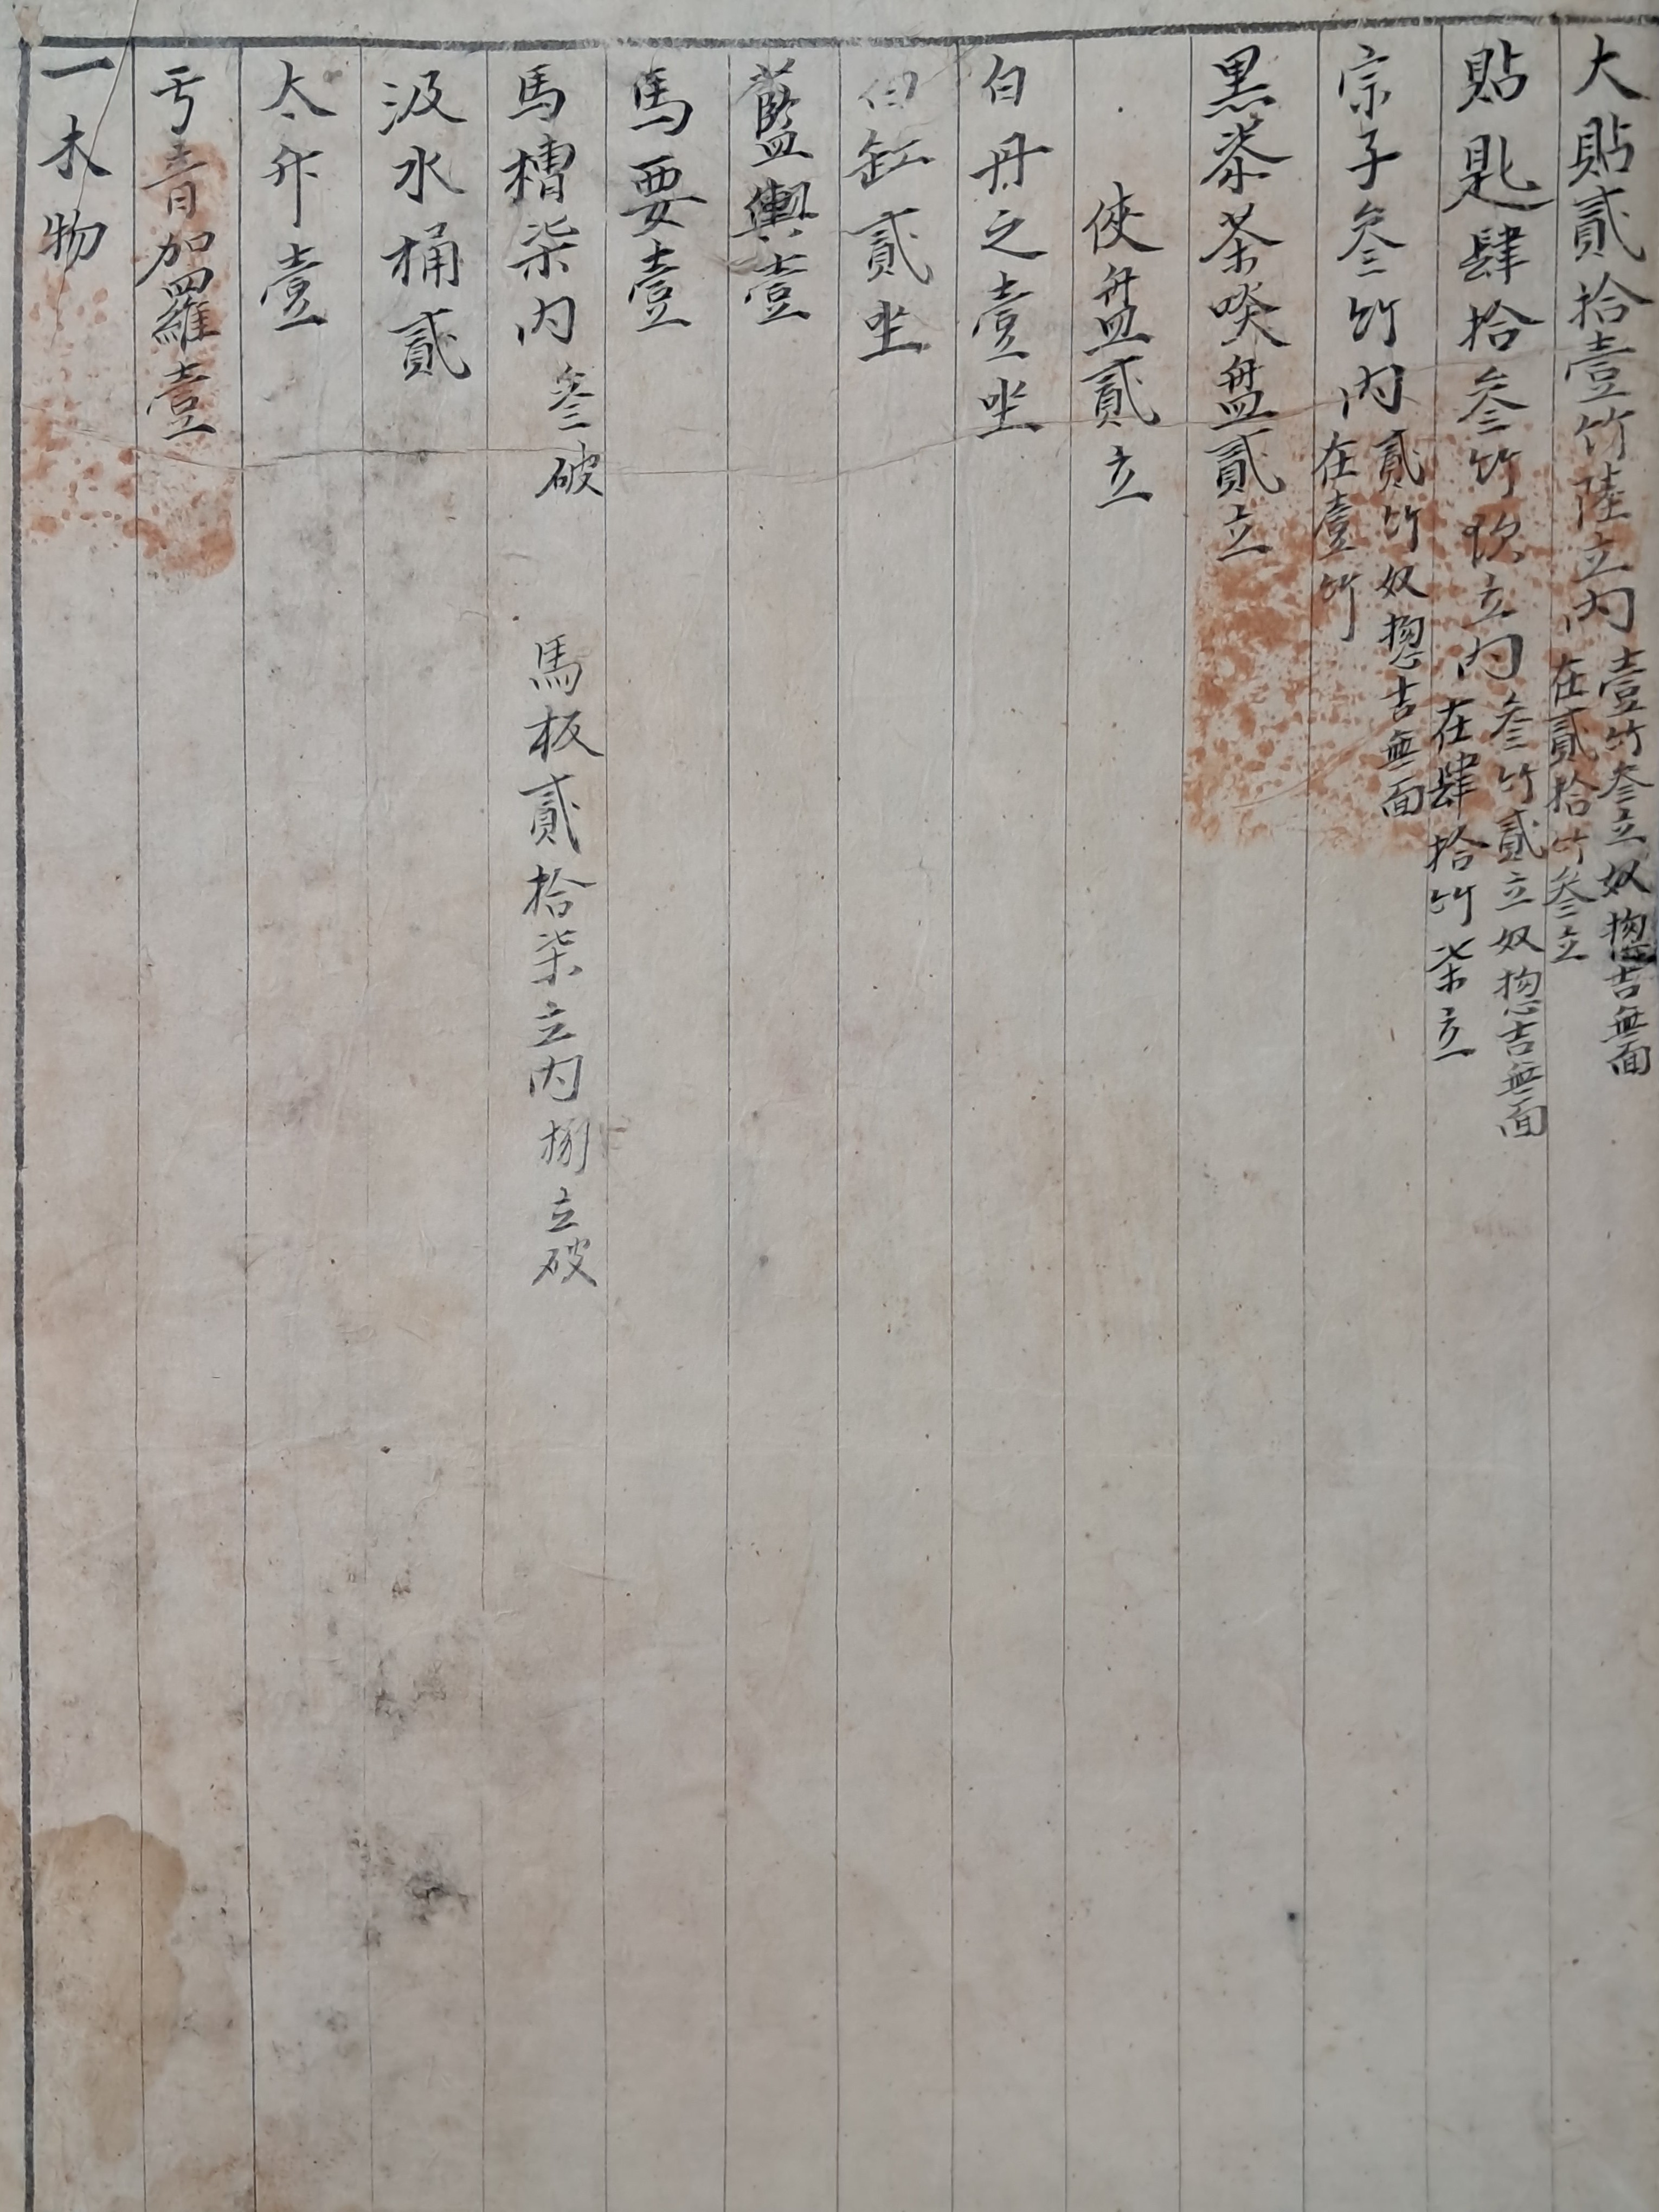 大貼貳拾壹竹陸立內
壹竹叁立奴㧾吉無面
在貳拾竹叁立
貼匙肆拾叁竹玖立內
叁竹貳立奴㧾吉無面
在肆拾竹柒立
宗子叁竹內
貳竹奴㧾吉無面
在壹竹
黑漆茶啖盤貳立
俠盤貳立
白丹之壹坐
白缸貳坐
藍輿壹
馬要壹
馬槽柒內叁破 馬板貳拾柒立內捌立破
汲水桶貳
大斗壹
亏音加羅壹
一木物